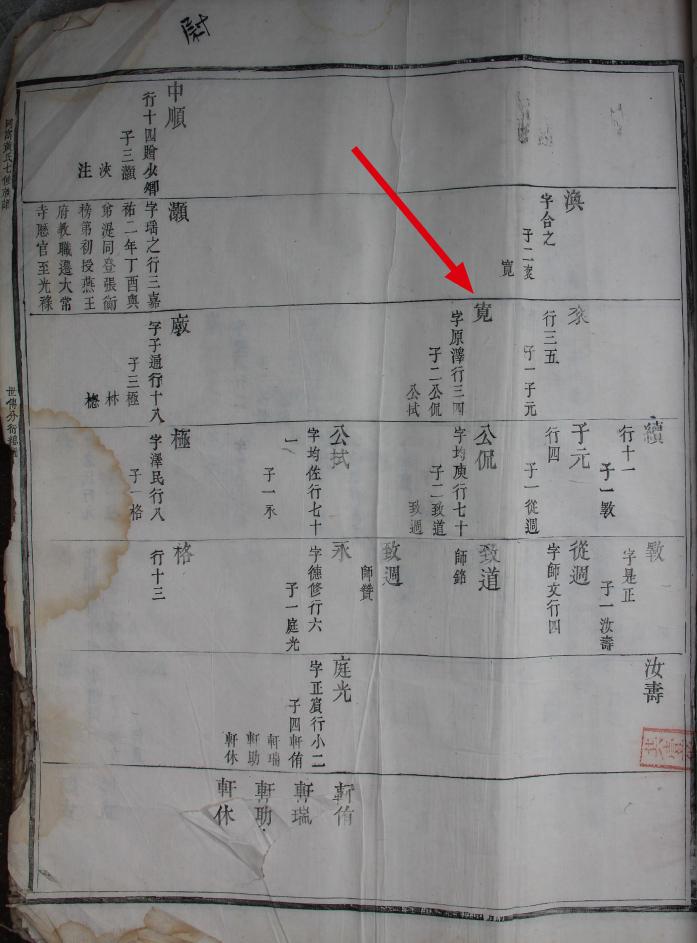 尉
中順
行十四贈少卿
子三灝
浹
注
渙
字合之
子二
寬
灝
字瑀之行三嘉
祐二年丁酉與
弟湜同登張衡
榜第初授燕王
府教職遷大常
寺㕔官至光祿
行三五
子一子元
寬
字原澤行三四
子二公侃
公拭
厳
字子通行十八
子三極
林
樬
續
行十一
子一斆
子元
行四
子一從週
公侃
字均庚行七十
子二致道
致週
公拭
字均佐行七十
一
子一永
極
字澤民行八
子一格
斆
字是正
子一汝壽
從週
字師文行四
致道
師錦
致週
師贊
永
字德修行六
子一庭光
格
行十三
汝壽
庭光
字正賓行小二
子四軒侑
軒瑞
軒助
軒休
軒侑
軒瑞
軒助
軒休